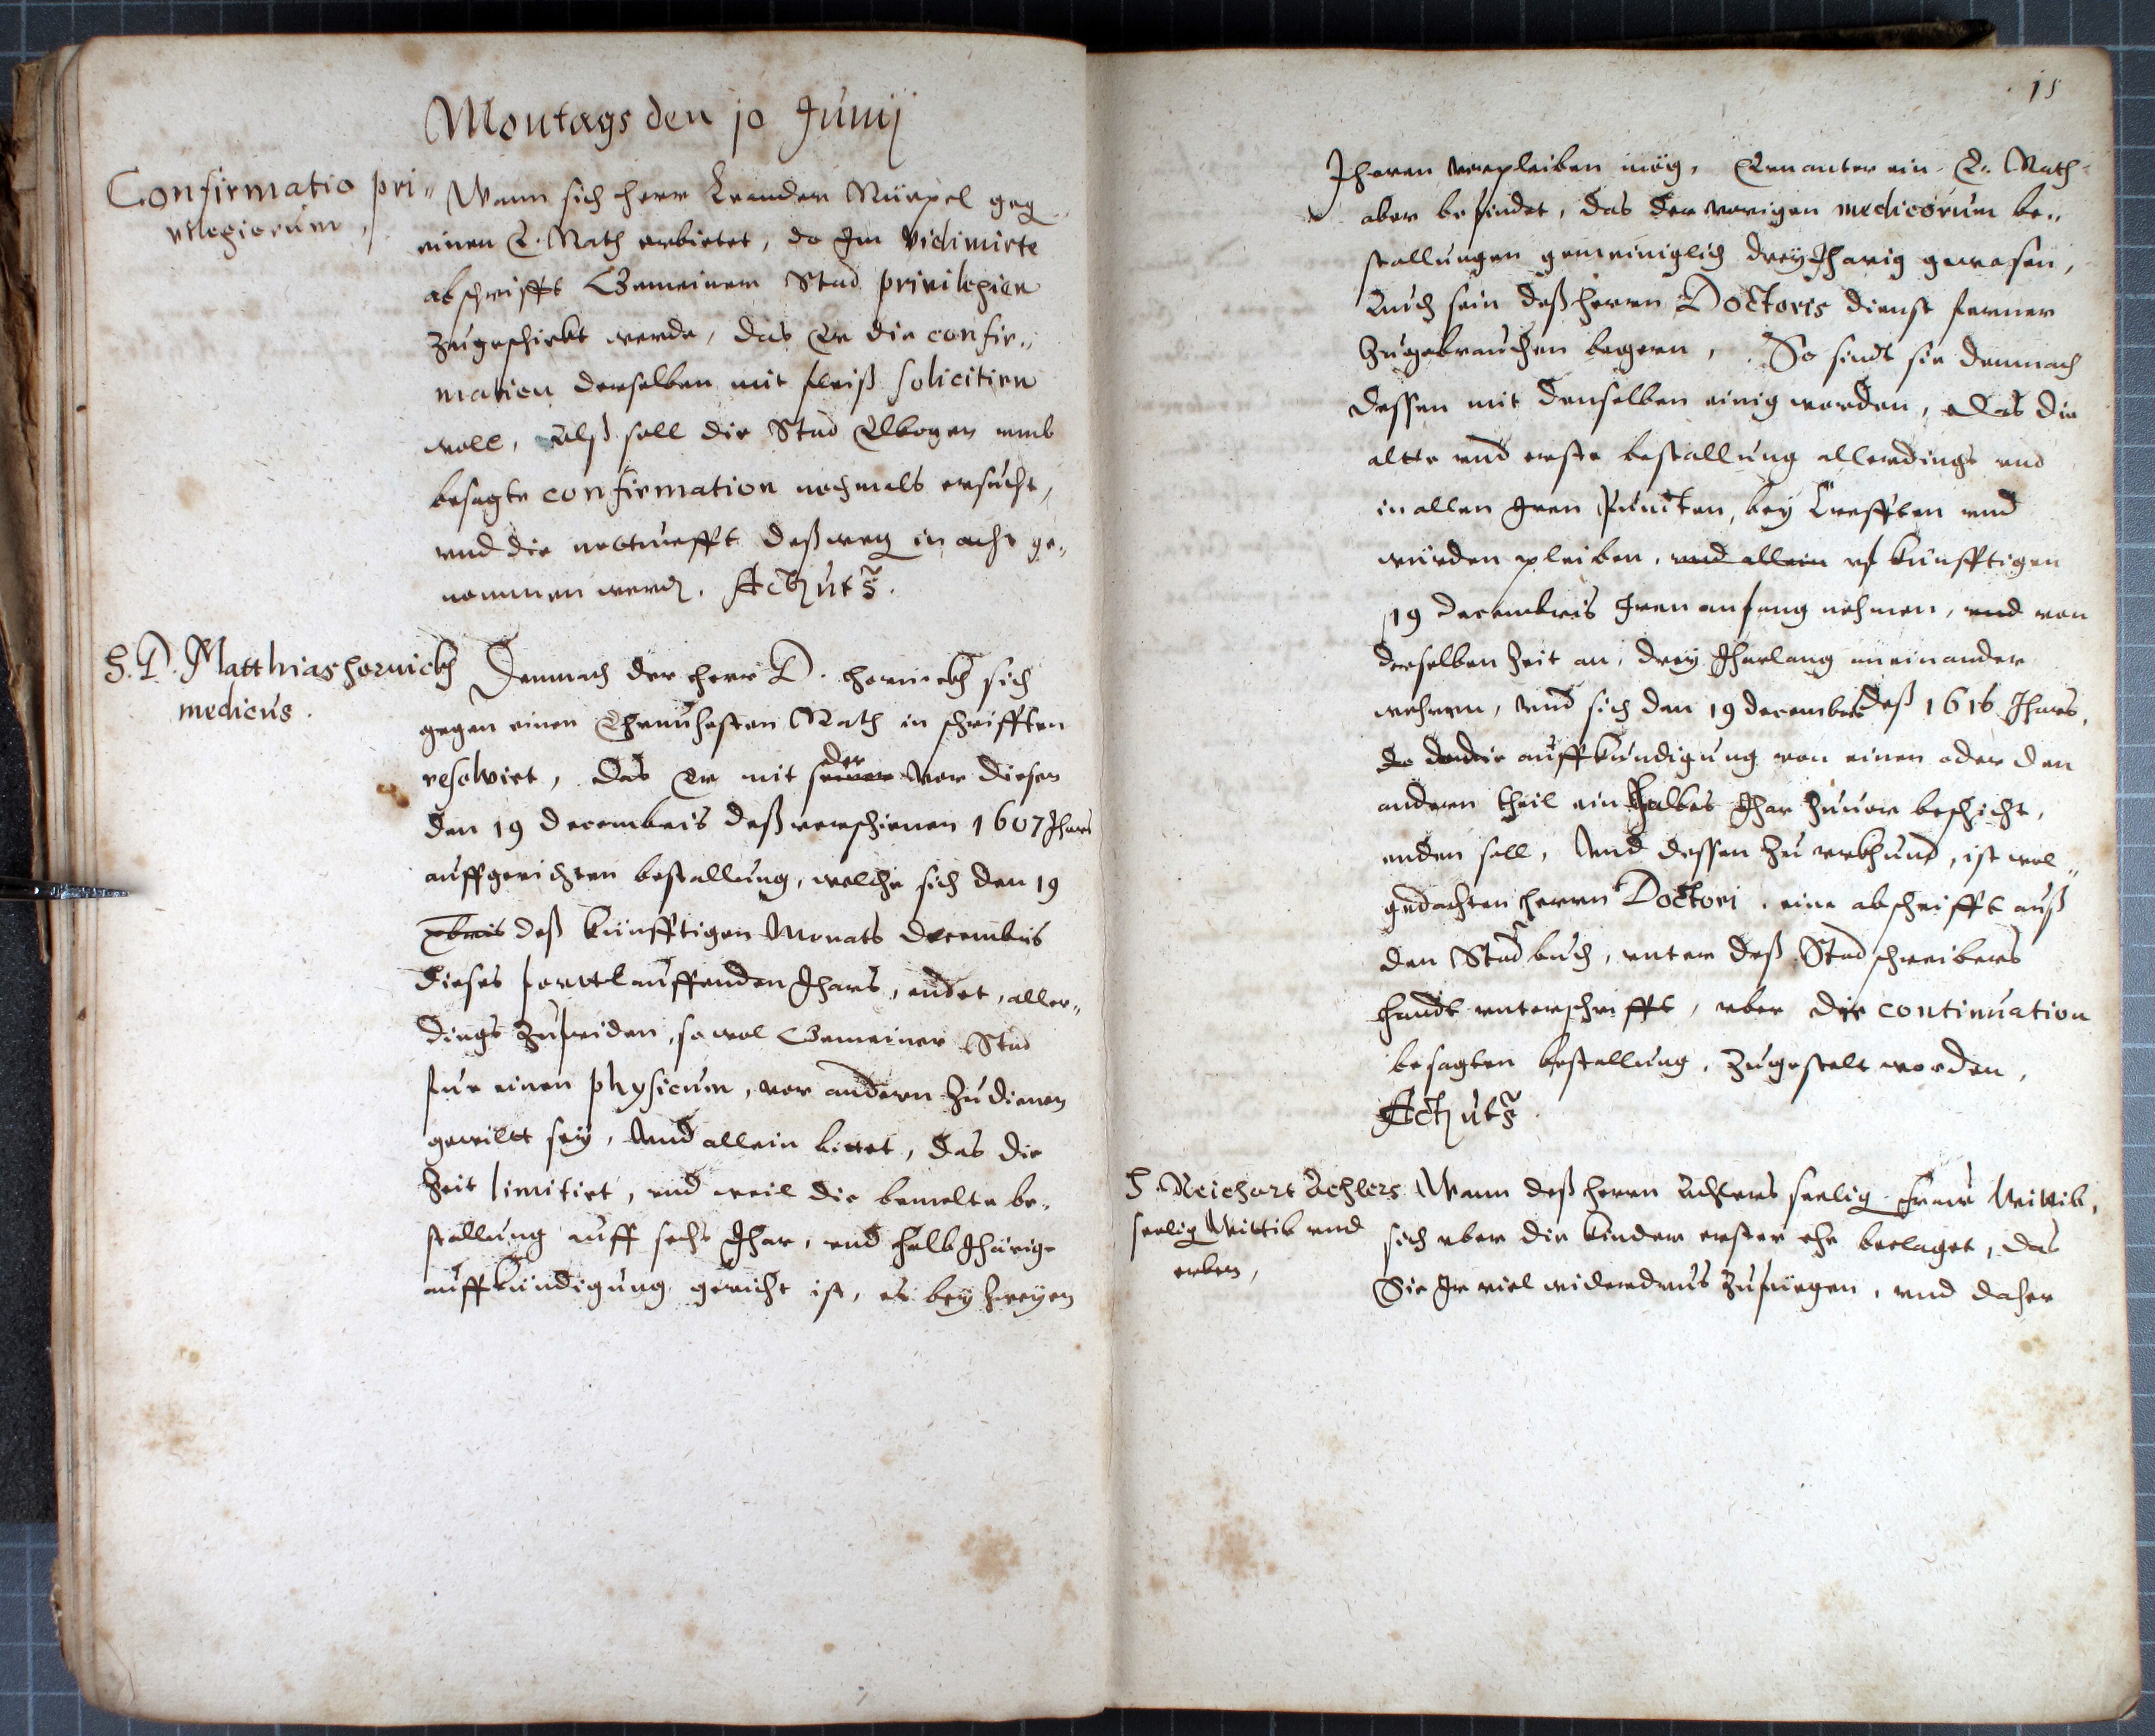 Montags den 10 Junij
Confirmatio pri„
vilegiorum,
Wann sich herr Leander Rüepel geg
einen E. Rath erbietet, do Im vidimirte
abschrifft Gemeiner Stad privilegien
zugeschickt werde, das Er die confir„
mation derselben mit fleiß solicitirn
woll, Alß soll die Stad Elbogen umb
besagte confirmation nochmals ersucht,
vnd die notturfft deßweg in acht ge„
nommen werd. Act ut s.
H. D. Matthias hornickh
medicus.
Demnach der herr D. hornickh sich
gegen einen Ehrnuhesten Rath in schrifften
resolvirt, das Er mit seiner der vor diesen
den 19 decembris deß verschienen 1607 Jhars
auffgerichten bestallung, welche sich den 19
xbris deß künfftigen Monats decembris
dieses forttlauffenden Jhars, endet, aller„
dings zufriden, so wol Gemeiner Stad
fur einen physicum, vor andern zu dienen
gewiltt sey, Vnd allein bittet, das die
Zeit limitirt, vnd weil die bemelte be„
stallung auff sechs Jhar, vnd halb Jhärige
auffkündigung gericht ist, es bey zweyen
15
Jharen verpleiben mög, Ernanter ein E. Rath
aber befindet, das der vorigen medicorum be„
stallungen gemeiniglich drey Jharig gewesen,
Auch sein deß herrn Doctoris dienst ferner
zugebrauchen begern, So sindt sie demnach
dessen mit denselben einig worden, das die
alte vnd erste bestallung allerdings vnd
in allen Iren Puncten, bey Crefften vnd
würden pleiben, vnd allein vf künfftigen
19 decembris Iren anfang nehmen, vnd von
derselben Zeit an, drey Jharlang an einander
wehren, Vnd sich den 19 decembris deß 1616 Jhars,
do die auffkundigung von einen oder den
andern theil ein halbes Jhar zuuor beschicht,
enden soll, Vnd dessen zu vrkhund, ist wol„
gedachten herrn Doctori, eine abschrifft auß
den Stadbuch, vnter deß Stadschreibers
handt vnterschrifft, vber die continuation
besagten bestellung, zugestelt worden,
Act ut s.
H. Reichart Achlers
seelig Wittib vnd
erben,
Wann deß herrn Achlers seelig Fraw Wittib,
sich vber die kinder erster ehe beclaget, das
Sie Ir viel widerdrus zufuegen, vnd daher